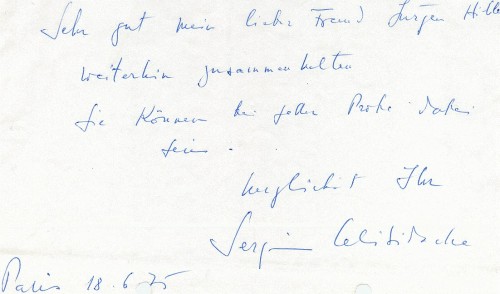 Sehr gut mein lieber Freund Jürgen
weiterhin zusammenhalten
Sie können bei jeder Probe dabei
sein.
herzlichst Ihr
Sergiu Celibidache
Paris 18.6.75